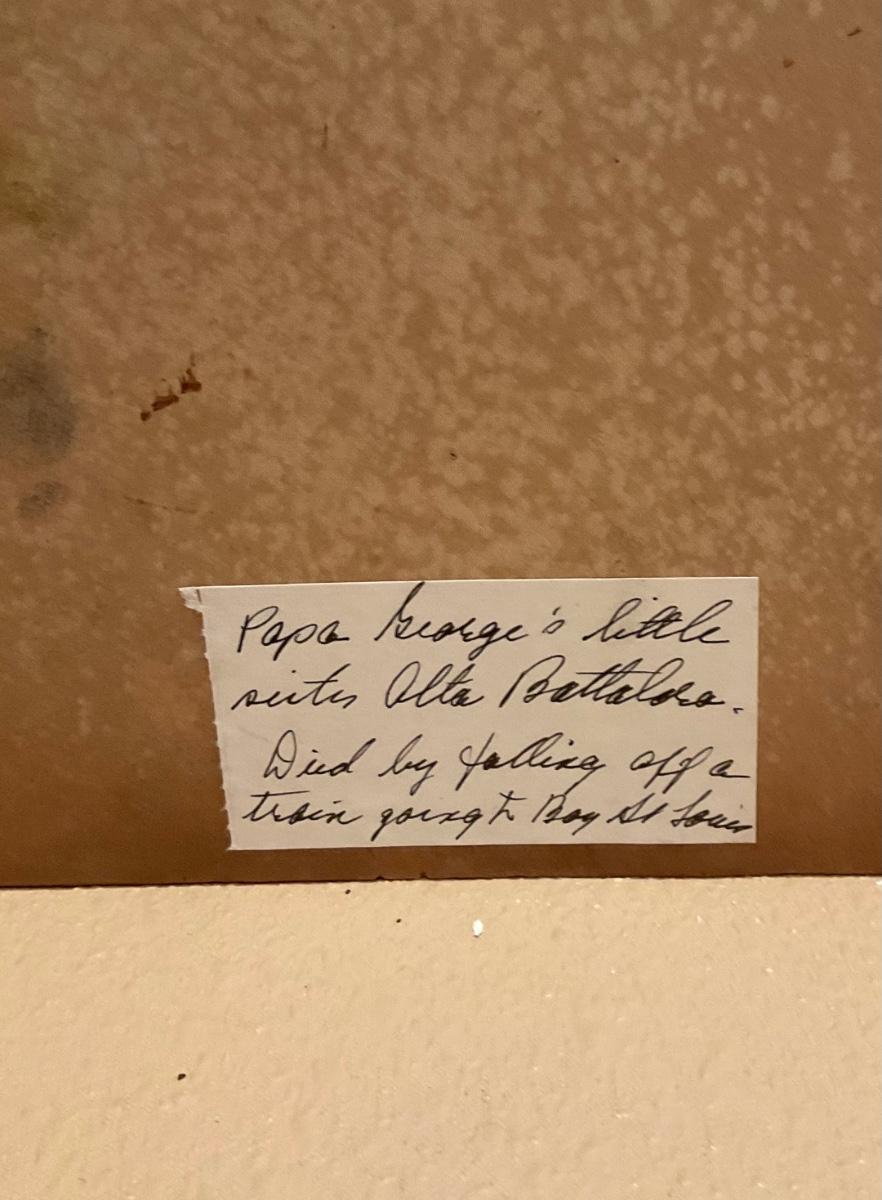 Papa George's little
sister Alta Battalora.
Died by falling off a
train going to Bay St Louis